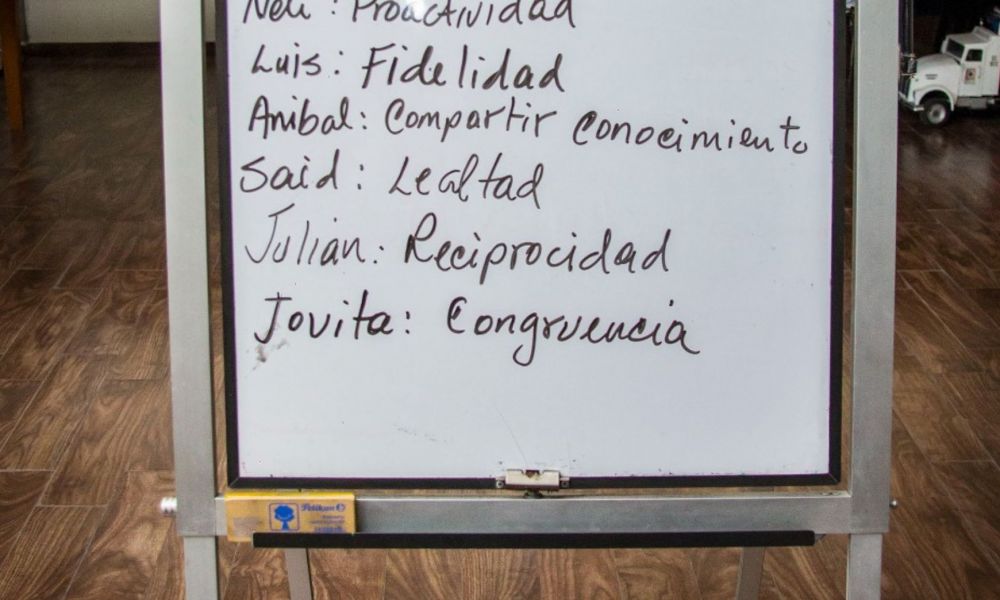 Neli : Proactividad
Luis : Fidelidad
Anibal : Compartir conocimiento
Said : Lealtad
Julian : Reciprocidad
Jovita : Congruencia
Pelikan